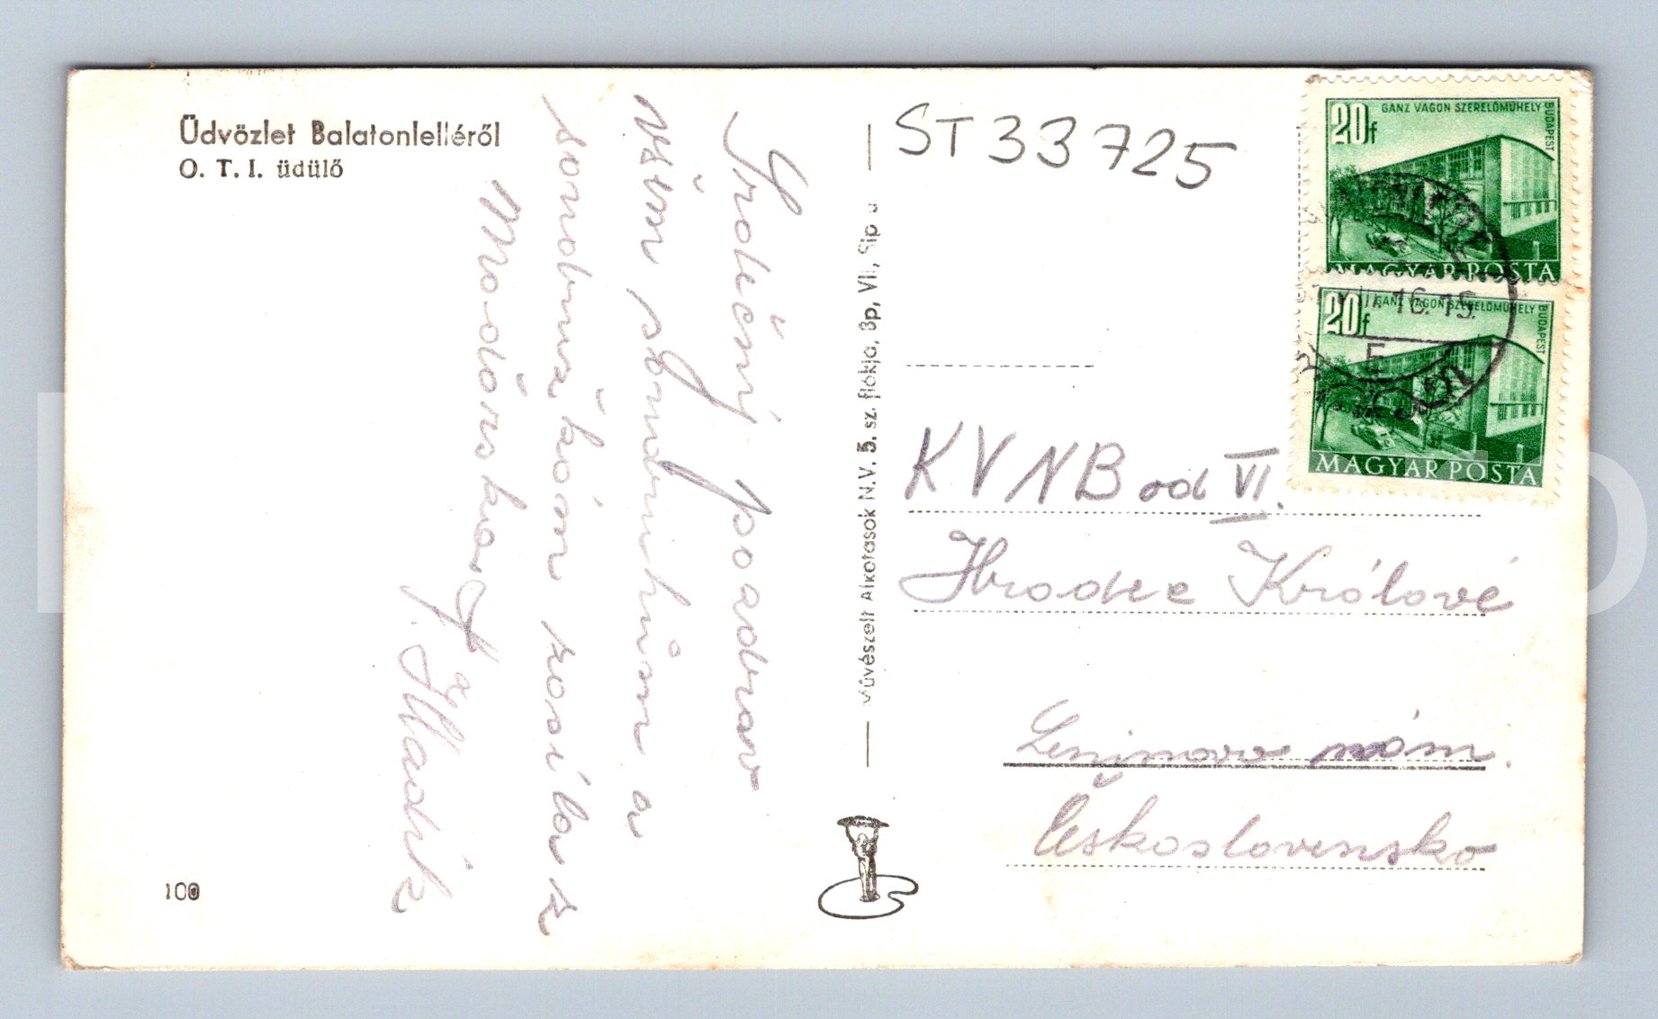 Üdvözlet Balatonlelléről
O. T. I. üdülő
100
Srdečný pozdrav
všem soudruhům a
soudružkám zasílá z
Maďarska
Művészeti Alkotások N.V. 5. sz. fiókja, Bp, VII, Síp u
ST33725
20f
GANZ VAGON SZERELŐMŰHELY
BUDAPEST
MAGYAR POSTA
20f
GANZ VAGON SZERELŐMŰHELY
BUDAPEST
MAGYAR POSTA
16.19.
KVNB od VI.
Hradec Králové
Leninovo nám.
Československo